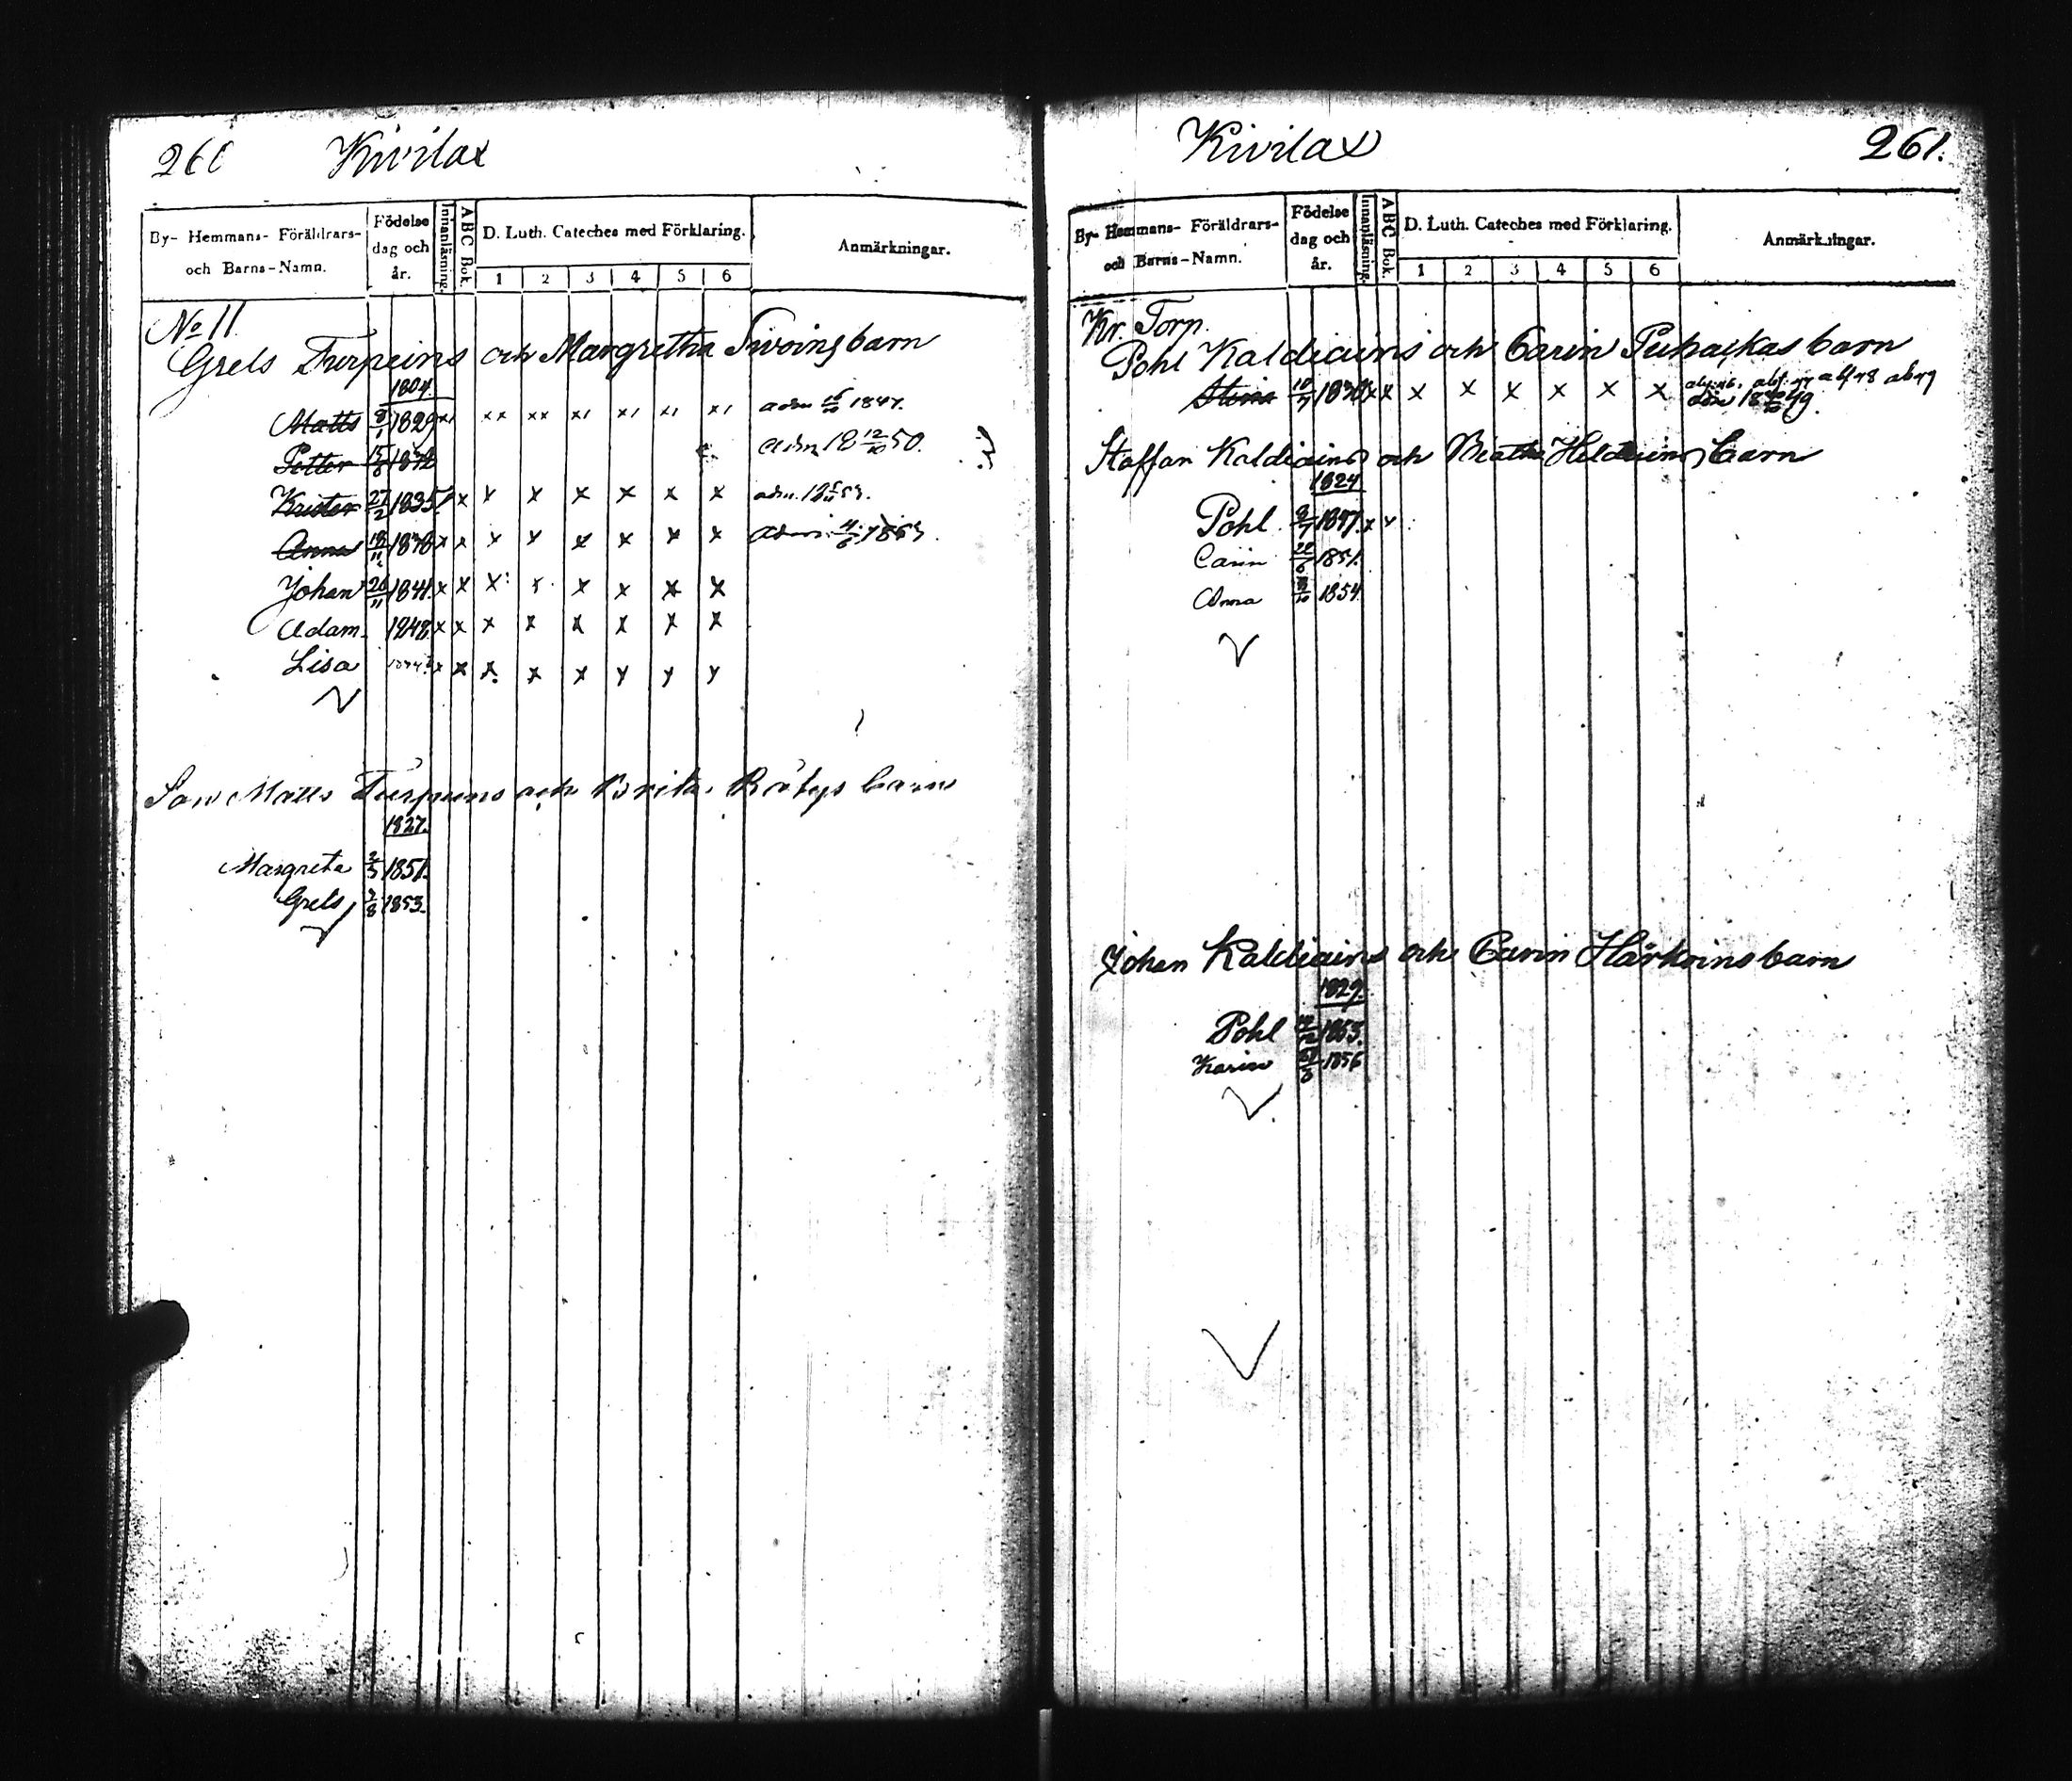 Kivilax
By- Hemmans- Föräldrars- och Barns-Namn.
Födelse dag och år.
Innanläsning.
ABC Bok.
D. Luth. Cateches med Förklaring.
1 2 3 4 5 6
Anmärkningar.
No 11.
Grels Turpeins och Margretha barn
1804.
Matts 8/1 1829 x x x x x x x adm 1847.
Petter adm 18 12/10 50.
Krister 27/2 1835 x x x x x x x adm.
Anna x x x x x x x x adm. 4/6
Johan 26/11 1841. x x x x x x x x
Adam x x x x x x x x
Lisa x x x x x x x x
Son Matts Turpeins och Brita Rätys barn
1827.
Margreta 1851.
Grels 1853.
Kivilax 261.
By- Hemmans- Föräldrars- och Barns-Namn.
Födelse dag och år.
Innanläsning.
ABC Bok.
D. Luth. Cateches med Förklaring.
1 2 3 4 5 6
Anmärkningar.
Kr. Torp.
Pohl Kaldiains och Carin Puhackas barn
Stina x x x x x x x x
Staffan Kaldiains och Beatha barn
1824
Pohl x x
Carin 1851.
Anna 1854.
Johan Kaldiains och Carin Härkoins barn
1829.
Pohl 1853.
Karin 1856